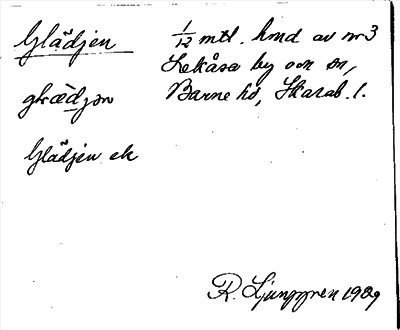 Glädjen 1/12 mtl. hmd av nr 3
Lekåsa by och sn,
glædjən Barne hd, Skarab. l.
Glädjen ek
R. Ljunggren 1929